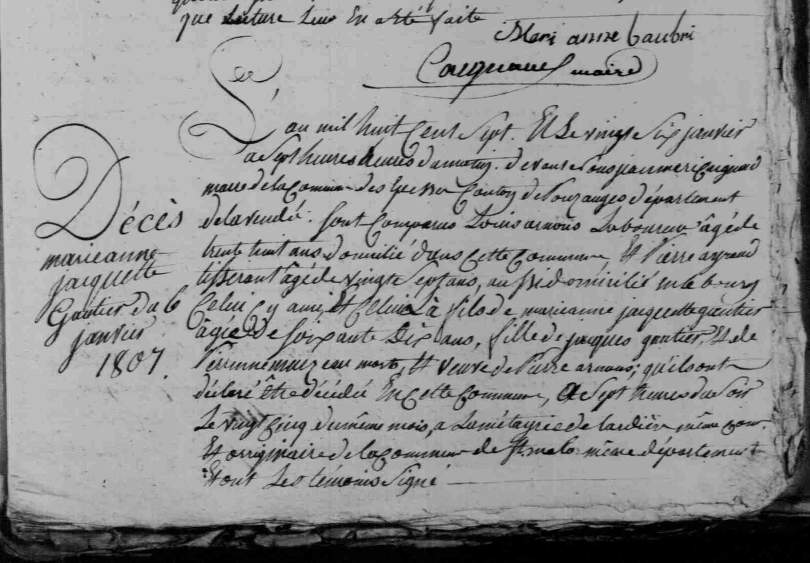 que lecture leur en a été faite
Mari anne baubri
maire
L'an mil huit Cent Sept. Et Le vingt Six janvier
a Sept heures du matin. devant Nous jean
maire de la Commune des Epesses Canton de Pouzanges département
de la vendée. Sont Comparus Louis arnous Laboureur âgé de
trente huit ans domicilié dans Cette Commune, et Pierre
tisserant âgé de vingt Sept ans, aussi domicilié en le bourg
Celui Cy ami, Et Celui Là fils de marieanne jacquette gautier
âgée de Soixante Dix ans, fille de jacques gautier, Et de
Perrinne morte, Et veuve de Pierre arnous; qu'ils ont
déclaré être décédée En Cette Commune, a Sept heures du Soir
Le vingt Cinq du même mois, a La métayrie de même Com.
Et originaire de la Commune de St. malo même département
Et ont Les témoins Signé
Décès
marieanne
jacquette
Gautier du 6
janvier
1807.